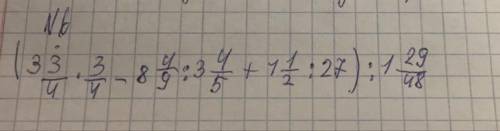 №6
(3 3/4 · 3/4 - 8 4/9 : 3 4/5 + 1 1/2 : 27) : 1 29/48